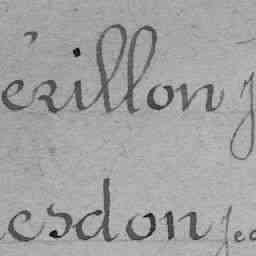 érillon J
esdon Jea